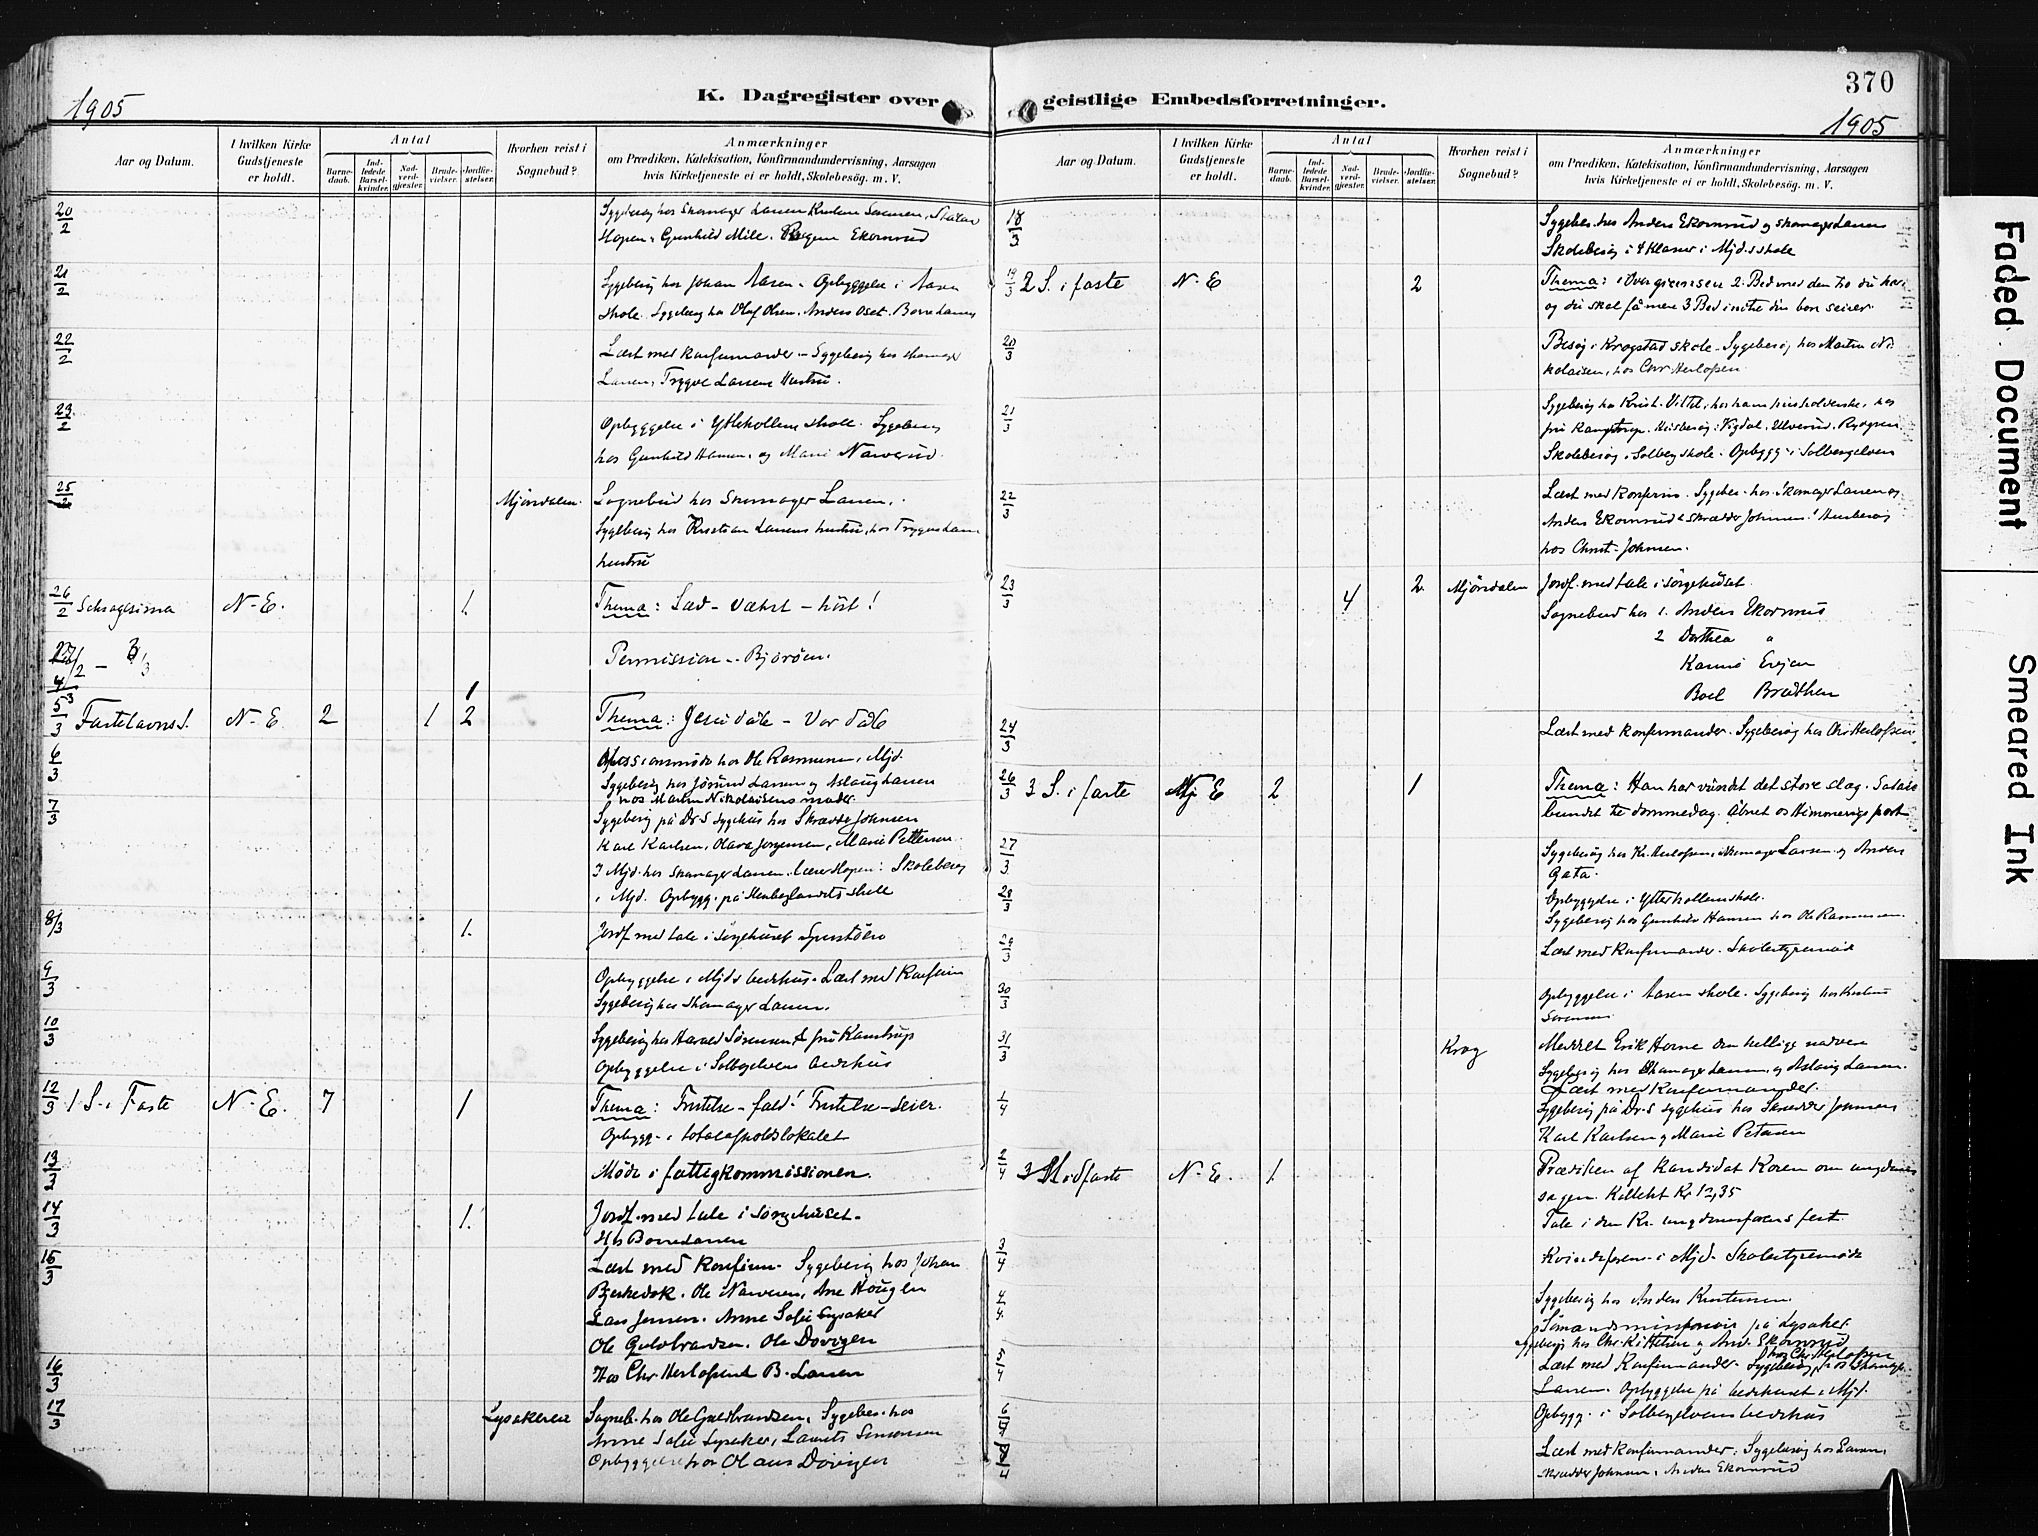 1905
K. Dagregister over
Aar og Datum.
I hvilken Kirke Gudstjeneste er holdt.
Antal
Barne-daab.
Ind-ledede Barsel-kvinder.
Nad-verd-gjæster.
Brude-vielser.
Jordfæ-stelser.
Hvorhen reist i Sognebud?
Anmærkninger
om Prædiken, Katekisation, Konfirmandundervisning, Aarsagen
hvis Kirketjeneste ei er holdt, Skolebesøg. m. V.
20/2 Sygebesøg hos Skomager Larsen
Hopen, Gunhild Mile. Ekornrud
21/2 Sygebesøg hos Johan Aasen. Opbyggelse i Aasen
skole. Sygebesøg hos Olaf Olsen, Anders Oset.
22/2 Læst med Konfirmander. Sygebesøg hos skomager
Larsen, Trygve Larsens Hustru.
23/2 Opbyggelse i Ytterkollens skole. Sygebesøg
hos Gunhild Hansen og Marie Narverud.
25/2 Mjøndalen. Sognebud hos Skomager Larsen.
Sygebesøg hos Kristian Larsens hustru, hos Trygve Larsens
hustru
26/2 Seksagesima N. E. 1. Thema: Sæd – Vækst – høst!
27/2 – 3/3 Permission – Bjørøen.
4/3 1
5/3 Fastelavns S. N. E 2 1 2 Thema: Jesu dåb – Vor dåb
6/3 hos Ole Rasmussen, Mjd.
Sygebesøg hos Larsen og Aslaug Larsen
hos Martin Nikolaisens moder.
7/3 Sygebesøg på Dr-s sygehus hos Skrædder Johnsen
Karl Karlsen, Olava Jorgensen, Marie Pettersen
I Mjd. hos skomager Larsen, lærer Hopen: Skolebesøg
i Mjd. Opbygg. på Stenbergløkkens skole
8/3 1. Jordf. med tale i Sørgehuset
9/3 Opbyggelse i Mjd-s bedehus. Læst med Konfirm
Sygebesøg hos skomager Larsen.
10/3 Sygebesøg hos Harald Sørensen & fru Kamstrup
Opbyggelse i Solbergelvens bedehus
12/3 1 S. i Faste N. E. 7 1 Thema: Fristelse – fald! Fristelse – seier.
Opbygg. i totalafholdslokalet
13/3 Møde i fattigkommissionen.
14/3 1. Jordf. med tale i Sørgehuset.
15/3 Læst med Konfirm. Sygebesøg hos Johan
Bjerkedok. Ole Narverud, Ane Hougen
Lars Jensen. Anne Sofie Lysaker
Ole Guldbrandsen. Ole Dovigen
16/3 Hos Chr. Herlofsen & B. Larsen
17/3 Lysakeren Sogneb. hos Ole Guldbrandsen, Sygebes. hos
Anne Sofie Lysaker, Laurits Simonsen
Opbyggelse hos Olaus Dovigen
370
geistlige Embedsforretninger.
1905
Aar og Datum.
I hvilken Kirke Gudstjeneste er holdt.
Antal
Barne-daab.
Ind-ledede Barsel-kvinder.
Nad-verd-gjæster.
Brude-vielser.
Jordfæ-stelser.
Hvorhen reist i Sognebud?
Anmærkninger
om Prædiken, Katekisation, Konfirmandundervisning, Aarsagen
hvis Kirketjeneste ei er holdt, Skolebesøg. m. V.
18/3 Sygebes. hos Anders Ekornrud og skomager Larsen
Skolebesøg i 4 Klasser i Mjd.s skole
19/3 2 S. i faste N. E 2 Thema: 2. Bed med den tro du har
og du skal få mere 3 Bed indtil din bøn seirer
20/3 Besøg i Krogstad skole. Sygebesøg hos Martin Ni-
kolaisen, hos Chr. Herlofsen
21/3 Sygebesøg hos Krist. Vittel, hos hans husholderske, hos
fru Kamstrup. Husbesøg: Vigdal, Ulverud,
Skolebesøg i Solberg skole. Opbygg. i Solbergelven
22/3 Læst med Konfirm. Sygebes. hos Skomager Larsen og
Anders Ekornrud & skrædder Johnsen. Husbesøg
hos Christ. Johnsen.
23/3 4 2 Mjøndalen Jordf. med tale i sørgehuset
Sognebud hos 1. Anders Ekornrud
2 Dorthea "
Evjen
Boel Bråthen
24/3 Læst med Konfirmander. Sygebesøg hos Chr Herlofsen
26/3 3 S. i faste Mj. E 2 1 Thema: Han har vundet det store slag. Satan
bundet til dommedag. Åbnet os Himmeriges port
27/3 Sygebesøg hos Kr. Herlofsen, skomager Larsen og Anders
Gata.
28/3 Opbyggelse i Ytterkollens skole.
Sygebesøg hos Gunhild Hansen hos Ole Rasmussen
29/3 Læst med Konfirmander. Skolestyremøde
30/3 Opbyggelse i Aasen skole. Sygebesøg hos
Sørensen
31/3 Krog Meddelt Erik Horne den hellige nadvere
Sygebesøg hos Skomager Larsen, og Aslaug Larsen.
Læst med Konfirmander.
1/4 Sygebesøg på Dr-s sygehus hos Skrædder Johnsen
Karl Karlsen og Marie Petersen
2/4 3 Midfaste N. E. 1. Prædiken af Kandidat Koren om ungdoms
sagen. Kollekt Kr 12,35
Tale i den Kr. ungdomsforens fest.
3/4 Kvindeforen. i Mjd. Skolestyremøde
4/4 Sygebesøg hos Anders Kristensen
Sømandsmissforen på Lysaker.
Sygebesøg hos Chr. Kittelsen og And. Ekornrud
hos Chr. Herlofsen
5/4 Læst med Konfirmander. Sygebesøg hos Skomager
Larsen. Opbyggelse på bedehuset i Mjd.
6/4 Opbygg. i Solbergelvens bedehus
/4 Læst med Konfirmander. Sygebesøg hos Larsen,
skrædder Johnsen, Anders Ekornrud
Faded Document
Smeared Ink